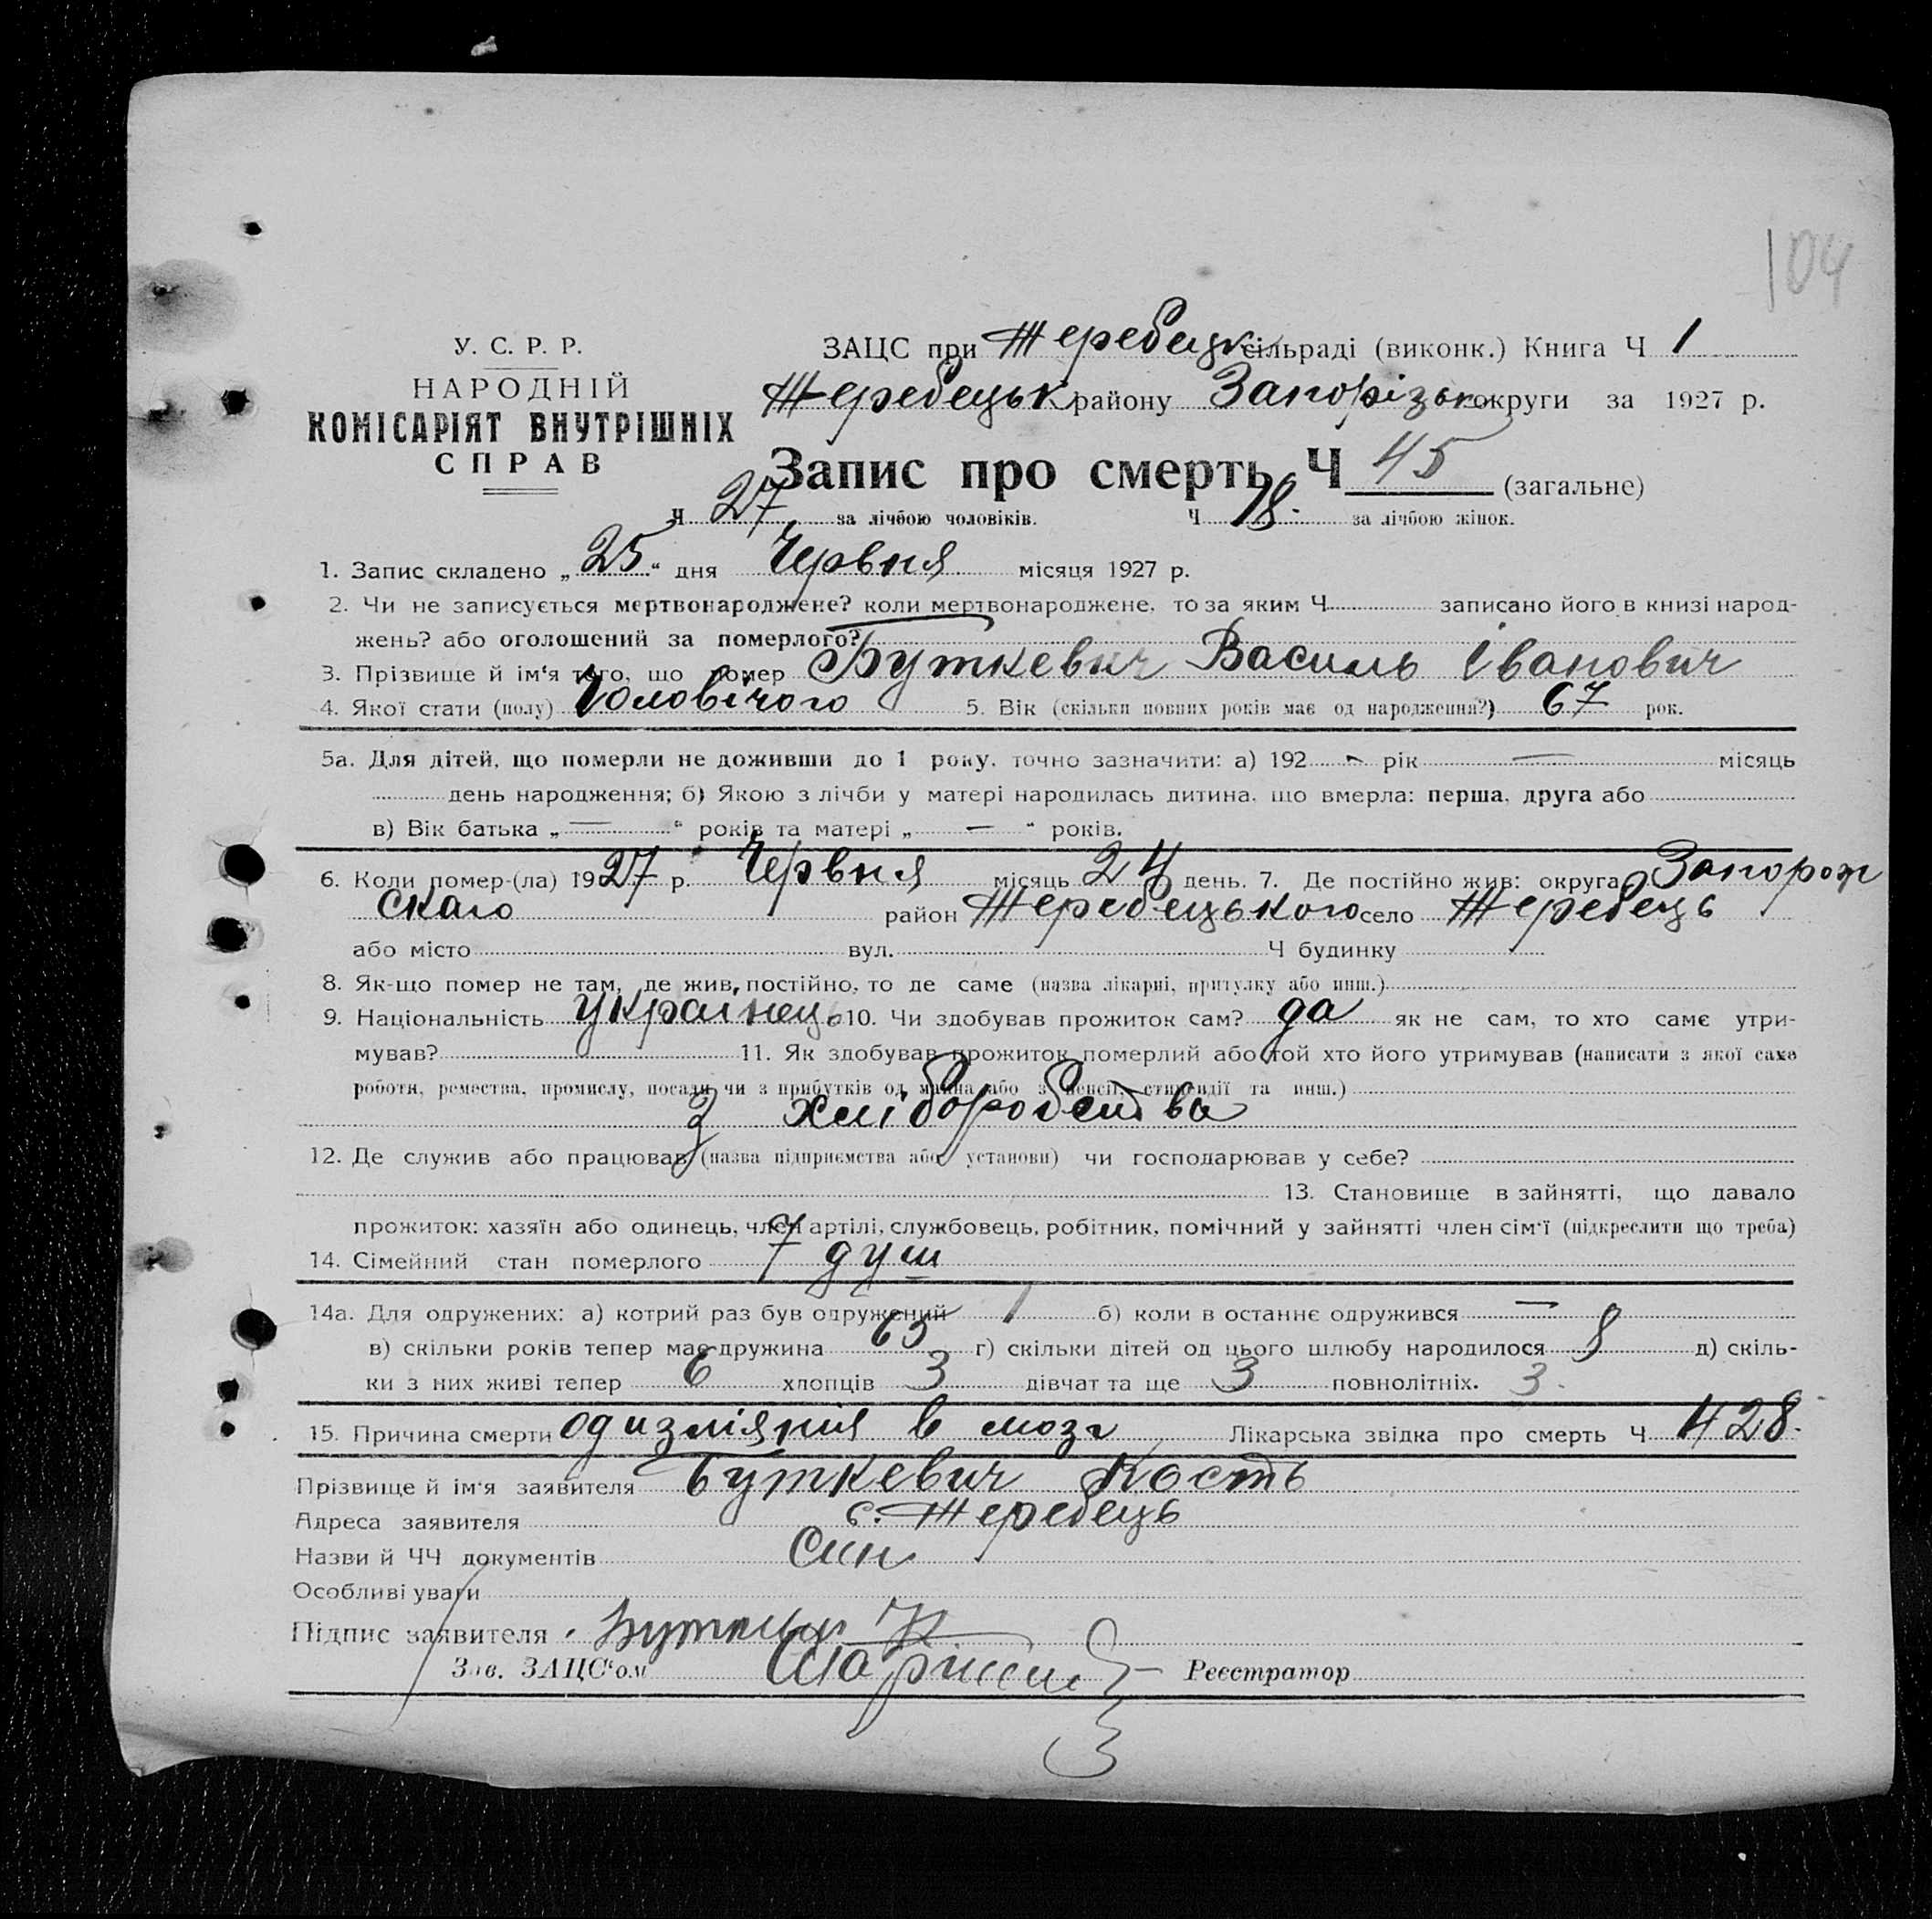 104
У. С. Р. Р.
НАРОДНІЙ
КОМІСАРІЯТ ВНУТРІШНІХ
СПРАВ
ЗАЦС при Жеребецьк сільраді (виконк.) Книга Ч 1
Жеребецьк району Запорізьк округи за 1927 р.
Запис про смерть Ч 45 (загальне)
Ч 27 за лічбою чоловіків. Ч 18. за лічбою жінок.
1. Запис складено „25“ дня Червня місяця 1927 р.
2. Чи не записується мертвонароджене? коли мертвонароджене, то за яким Ч записано його в книзі народ-
жень? або оголошений за померлого?
3. Прізвище й ім'я того, що помер Буткевич Василь Іванович
4. Якої стати (полу) Чоловічого 5. Вік (скільки повних років має од народження?) 67 рок.
5а. Для дітей, що померли не доживши до 1 року, точно зазначити: а) 192 - рік — місяць
день народження; б) Якою з лічби у матері народилась дитина, що вмерла: перша, друга або
в) Вік батька „—“ років та матері „—“ років.
6. Коли помер-(ла) 1927 р. Червня місяць 24 день. 7. Де постійно жив: округа Запорож
скаго район Жеребецького село Жеребець
або місто вул. Ч будинку
8. Як-що помер не там, де жив, постійно, то де саме (назва лікарні, притулку або инш.)
9. Національність українець 10. Чи здобував прожиток сам? да як не сам, то хто саме утри-
мував? 11. Як здобував прожиток померлий або той хто його утримував (написати з якої саме
роботи, ремества, промислу, посади чи з прибутків од майна або з пенсії, стипендії та инш.)
З хліборобства
12. Де служив або працював (назва підприємства або установи) чи господарював у себе?
13. Становище в зайнятті, що давало
прожиток: хазяїн або одинець, член артілі, службовець, робітник, помічний у зайнятті член сім'ї (підкреслити що треба)
14. Сімейний стан померлого 7 душ
14а. Для одружених: а) котрий раз був одружений 1 б) коли в останнє одружився —
в) скільки років тепер має дружина 65 г) скільки дітей од цього шлюбу народилося 8 д) скіль-
ки з них живі тепер 6 хлопців 3 дівчат та ще 3 повнолітніх. 3.
15. Причина смерти од изліяния в мозг Лікарська звідка про смерть Ч 428.
Прізвище й ім'я заявителя Буткевич Кость
Адреса заявителя с. Жеребець
Назви й ЧЧ документів Син
Особливі уваги
Підпис заявителя Буткевич К
Зав. ЗАЦС'ом Реєстратор